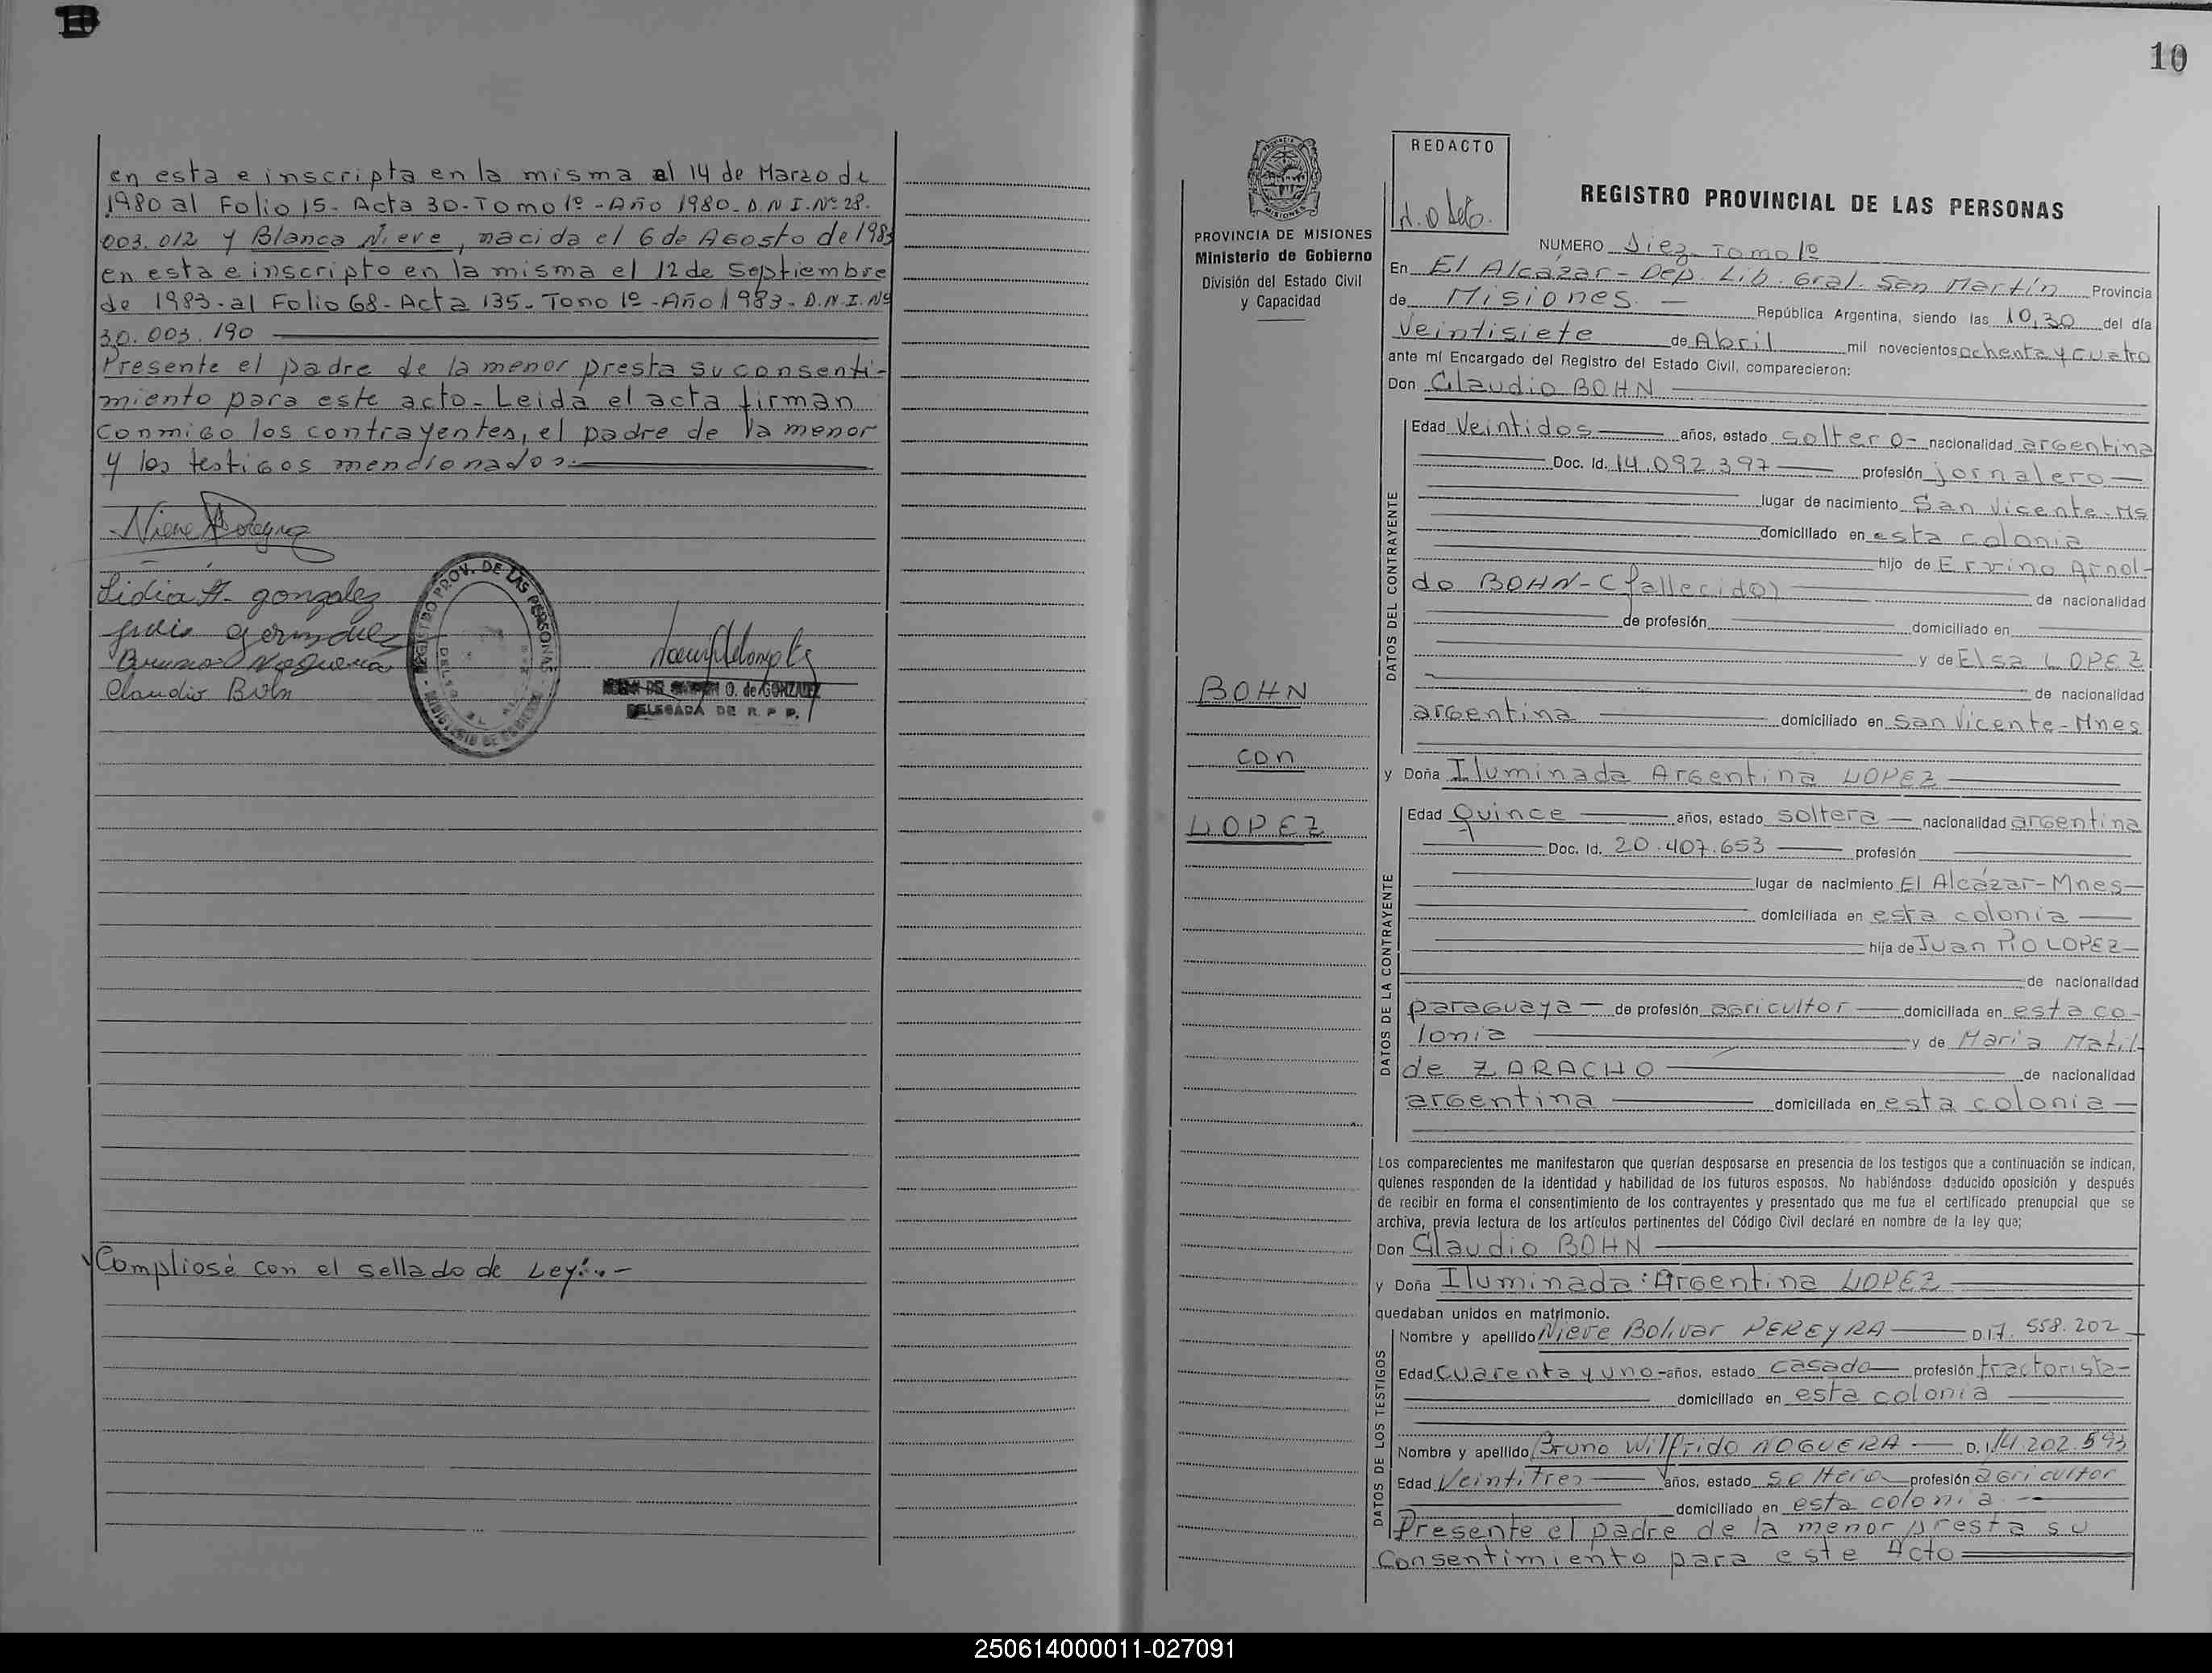 10
en esta e inscripta en la misma el 14 de Marzo de
1980 al Folio 15- Acta 30- Tomo 1º - Año 1980- D.N.I. Nº 28.
003.012 y Blanca Nieve, nacida el 6 de Agosto de 1983
en esta e inscripto en la misma el 12 de Septiembre
de 1983- al Folio 68- Acta 135- Tomo 1º - Año 1983- D.N.I. Nº
30.003.190
Presente el padre de la menor presta su consenti-
miento para este acto- Leida el acta firman
conmigo los contrayentes, el padre de la menor
y los testigos mencionados.
Lidia A. gonzalez
Bruno Noguera
Claudio Bohn
REGISTRO PROV. DE LAS PERSONAS
O. de GONZALEZ
DELEGADA DE R. P. P.
Compliosé con el sellado de Ley.-
10
PROVINCIA DE MISIONES
Ministerio de Gobierno
División del Estado Civil
y Capacidad
BOHN
con
LOPEZ
REDACTO
REGISTRO PROVINCIAL DE LAS PERSONAS
NUMERO Diez Tomo 1º
En El Alcázar- Dep. Lib. Gral. San Martín Provincia
de Misiones. República Argentina, siendo las 10,30 del día
Veintisiete de Abril mil novecientos ochenta y cuatro
ante mí Encargado del Registro del Estado Civil, comparecieron:
Don Claudio BOHN
DATOS DEL CONTRAYENTE
Edad Veintidos años, estado soltero- nacionalidad argentina
Doc. Id. 14.092.397 profesión jornalero
lugar de nacimiento San Vicente- Ms
domiciliado en esta colonia
hijo de Ervino Arnol-
do BOHN- (fallecido) de nacionalidad
de profesión domiciliado en
y de Elsa LOPEZ
de nacionalidad
argentina domiciliado en San Vicente- Mnes
y Doña Iluminada Argentina LOPEZ
DATOS DE LA CONTRAYENTE
Edad Quince años, estado soltera nacionalidad argentina
Doc. Id. 20.407.653 profesión
lugar de nacimiento El Alcázar- Mnes
domiciliada en esta colonia
hija de Juan PIO LOPEZ
de nacionalidad
paraguaya de profesión agricultor domiciliada en esta co-
lonia y de Maria Matil-
de ZARACHO de nacionalidad
argentina domiciliada en esta colonia
Los comparecientes me manifestaron que querían desposarse en presencia de los testigos que a continuación se indican,
quienes responden de la identidad y habilidad de los futuros esposos. No habiéndose deducido oposición y después
de recibir en forma el consentimiento de los contrayentes y presentado que me fue el certificado prenupcial que se
archiva, previa lectura de los artículos pertinentes del Código Civil declaré en nombre de la ley que;
Don Claudio BOHN
y Doña Iluminada Argentina LOPEZ
quedaban unidos en matrimonio.
DATOS DE LOS TESTIGOS
Nombre y apellido Nieve Bolivar PEREYRA D.I 7.558.202
Edad Cuarenta y uno años, estado casado profesión tractorista
domiciliado en esta colonia
Nombre y apellido Bruno Wilfrido NOGUERA D.I. 14.202.593
Edad Veintitres años, estado soltero profesión agricultor
domiciliado en esta colonia
Presente el padre de la menor presta su
Consentimiento para este Acto
250614000011-027091